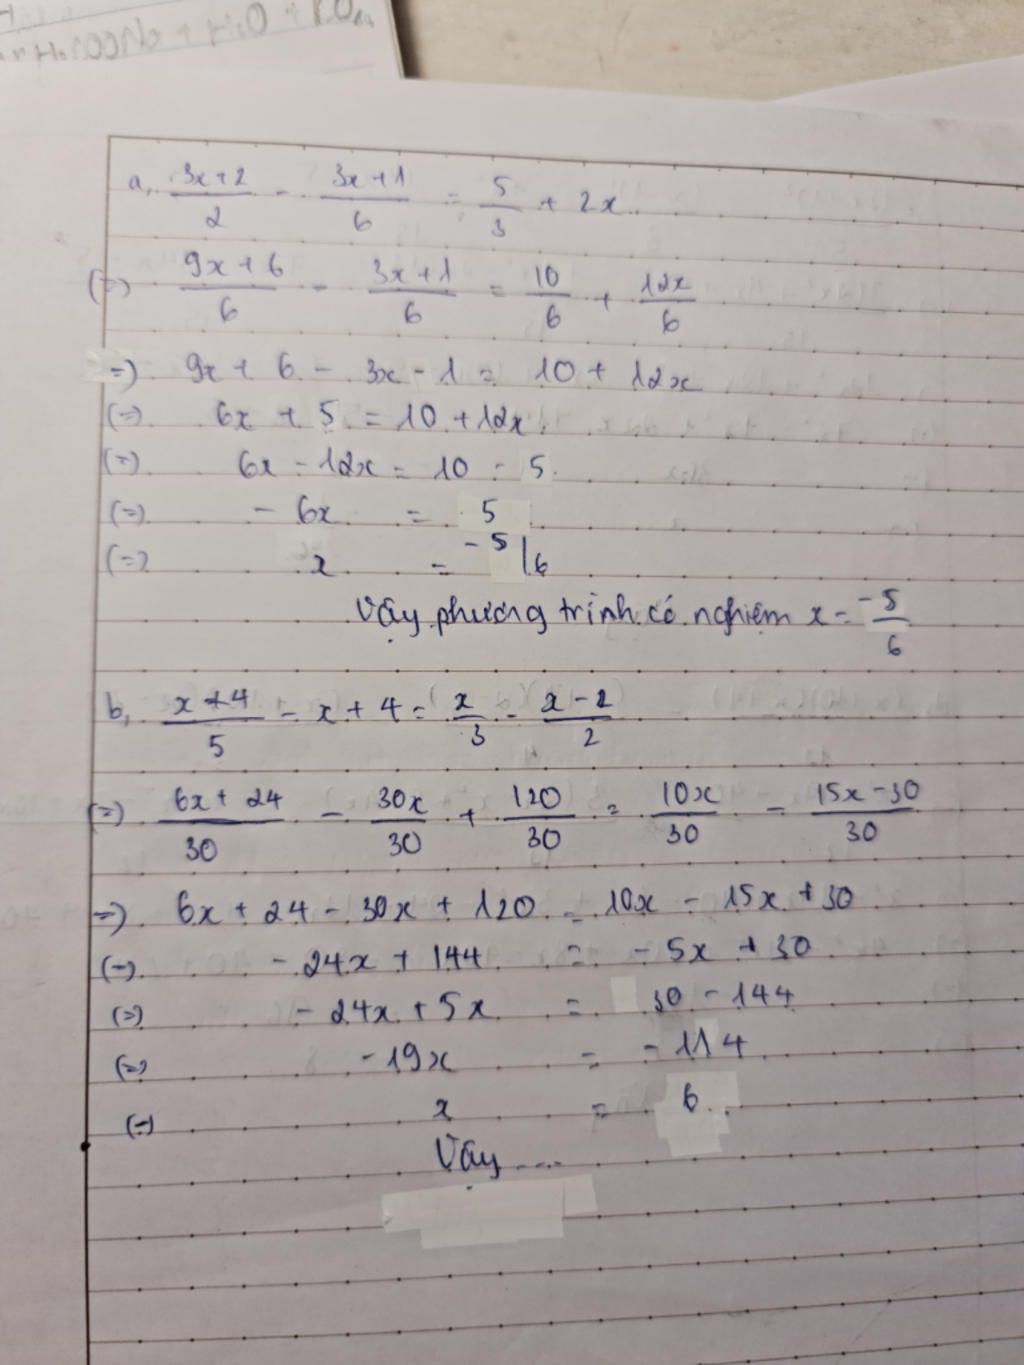 a, 3x+2/2 - 3x+1/6 = 5/3 + 2x
(=) 9x+6/6 - 3x+1/6 = 10/6 + 12x/6
=) 9x + 6 - 3x - 1 = 10 + 12x
(=) 6x + 5 = 10 + 12x
(=) 6x - 12x = 10 - 5
(=) - 6x = 5
(=) x = -5/6
Vậy phương trình có nghiệm x = -5/6
b, x+4/5 - x + 4 = x/3 - x-2/2
(=) 6x+24/30 - 30x/30 + 120/30 = 10x/30 - 15x-30/30
=) 6x + 24 - 30x + 120 = 10x - 15x + 30
(=) - 24x + 144 = - 5x + 30
(=) - 24x + 5x = 30 - 144
(=) -19x = - 114
(=) x = 6
Vậy ....